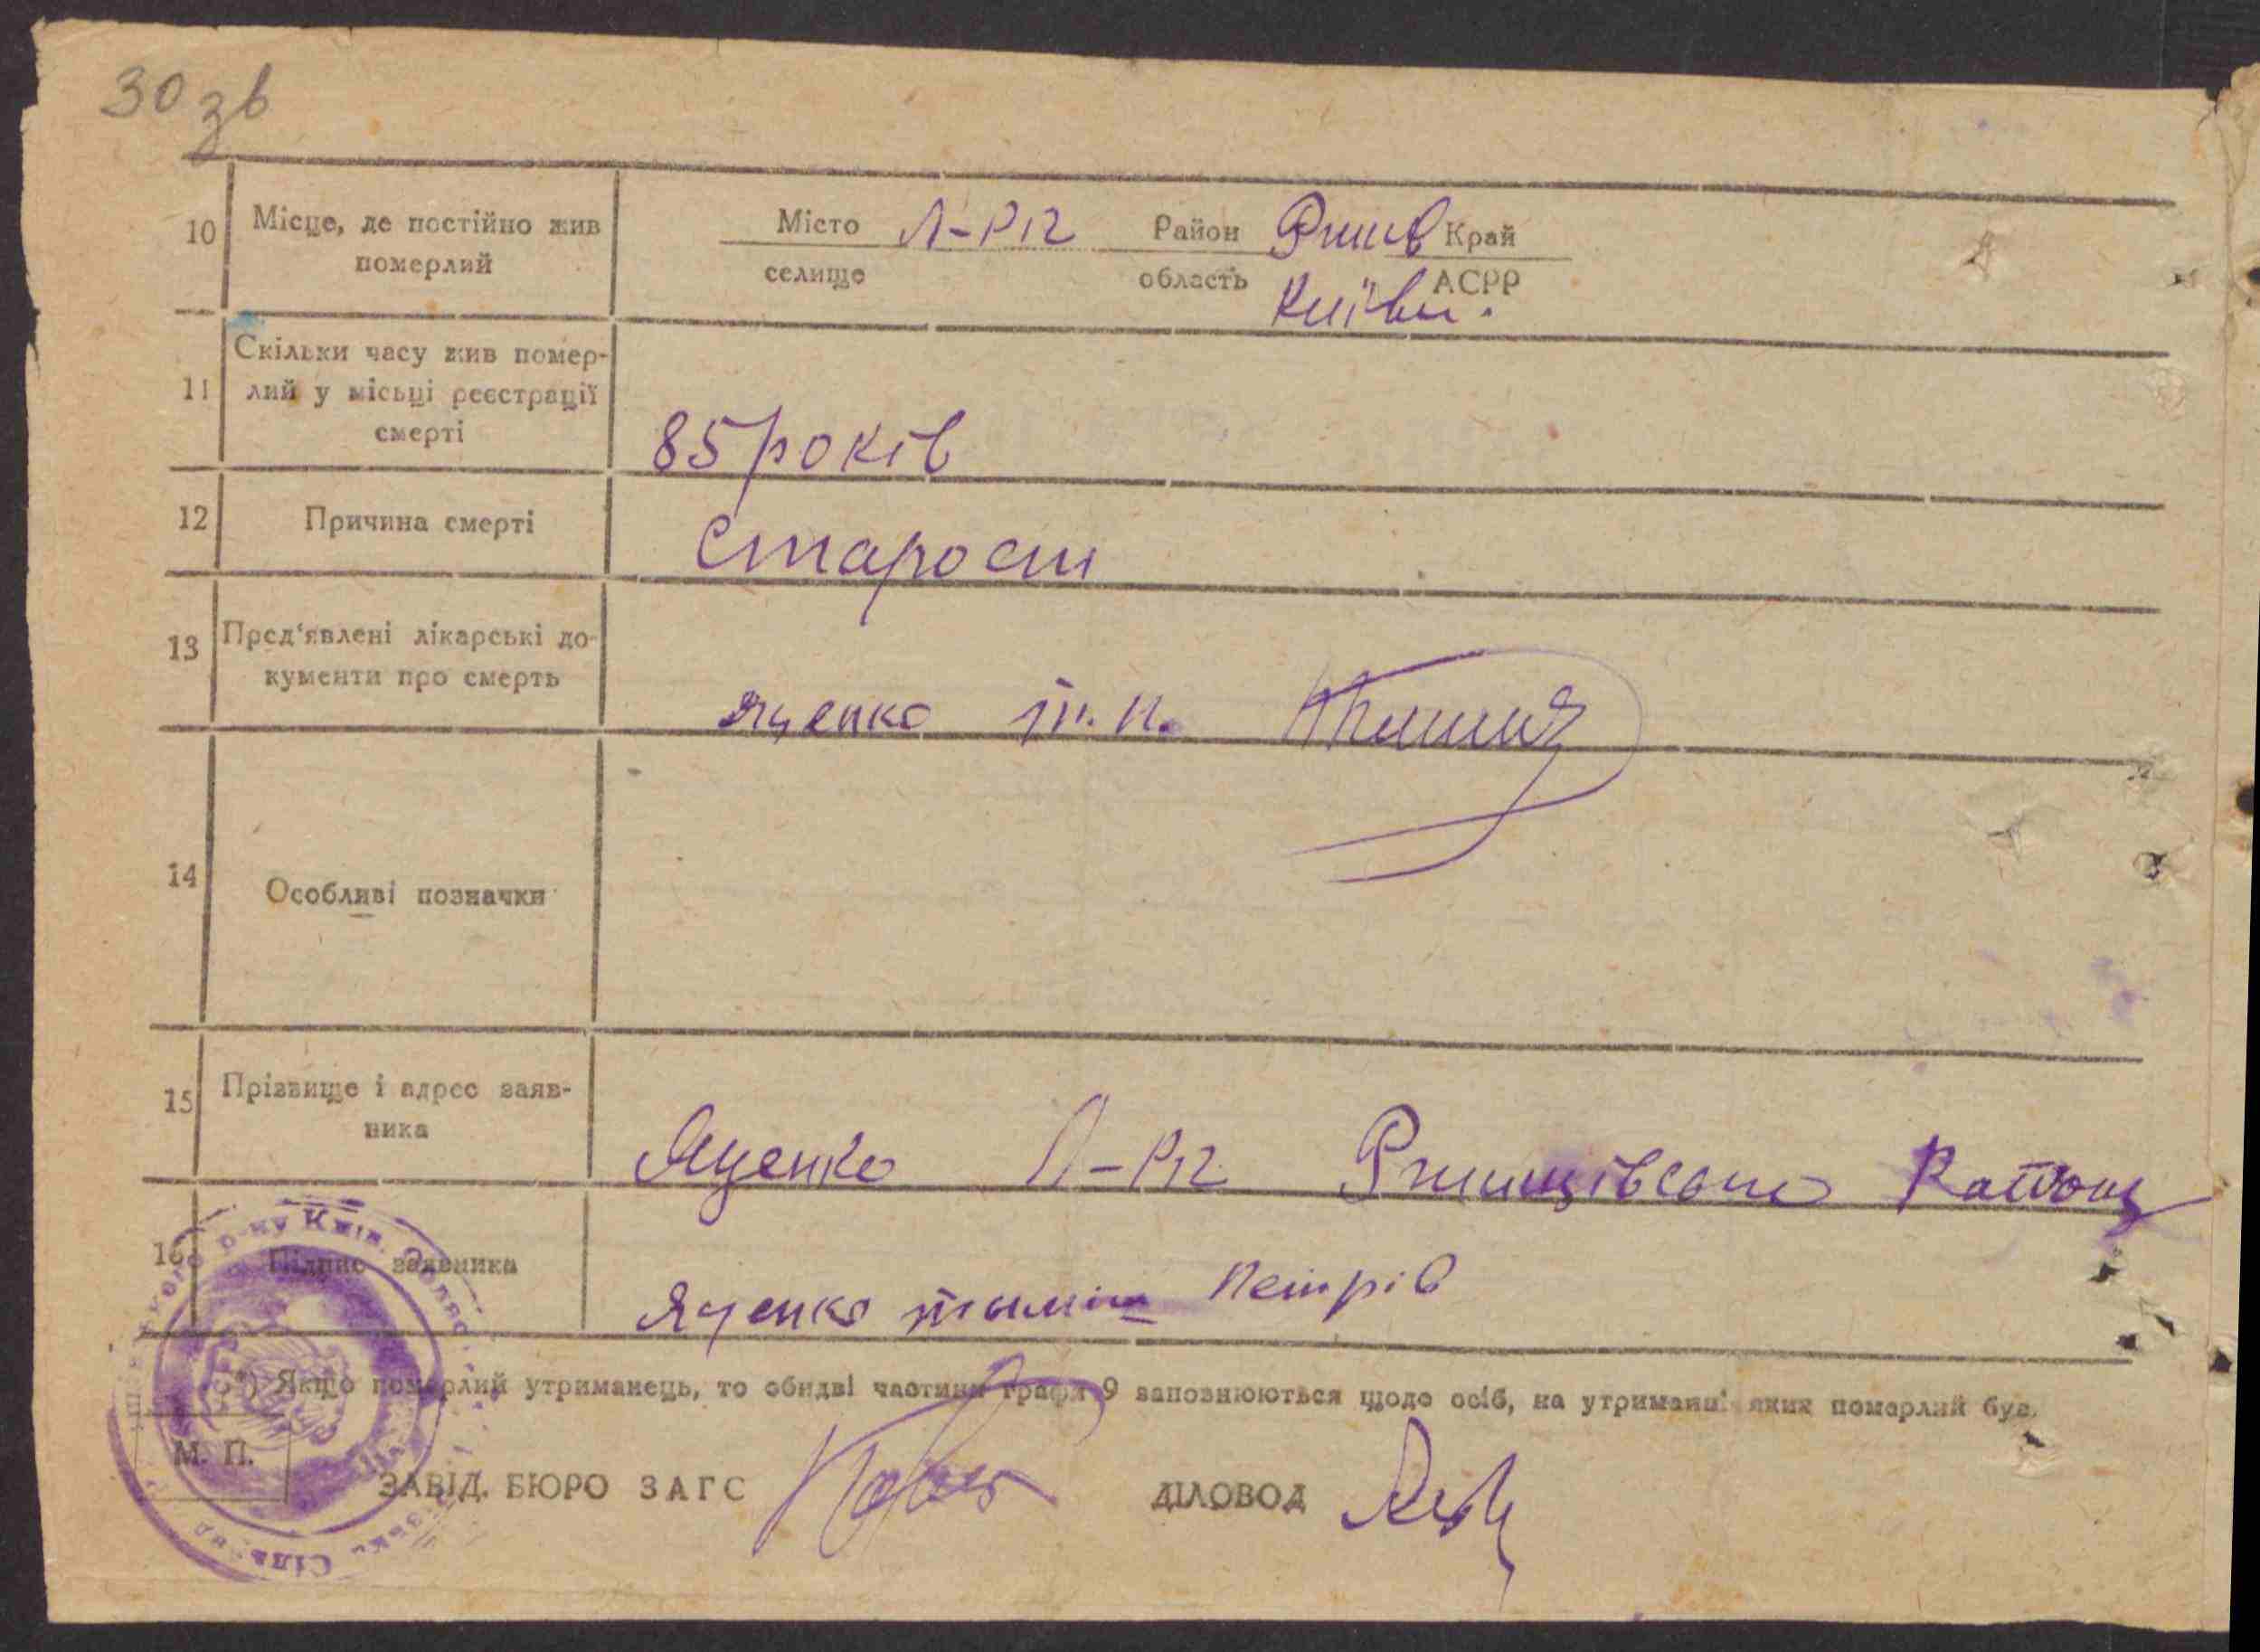 30 зв
10 Місце, де постійно жив померлий
Місто Л-Різ Район Ржищ Край
селище область Київ. АСРР
11 Скільки часу жив помер-
лий у місьці реєстрації
смерті
85 років
12 Причина смерті
Старости
13 Пред'явлені лікарські до-
кументи про смерть
Яценко т. п.
14 Особливі позначки
15 Прізвище і адрес заяв-
ника
Яценко Л-Різ Ржищівсого Району
16 Підпис заявника
Яценко Петрів
*) Якщо померлий утриманець, то обидві частини графи 9 заповнюються щодо осіб, на утриманні яких померлий був.
М. П.
ЗАВІД. БЮРО ЗАГС ДІЛОВОД